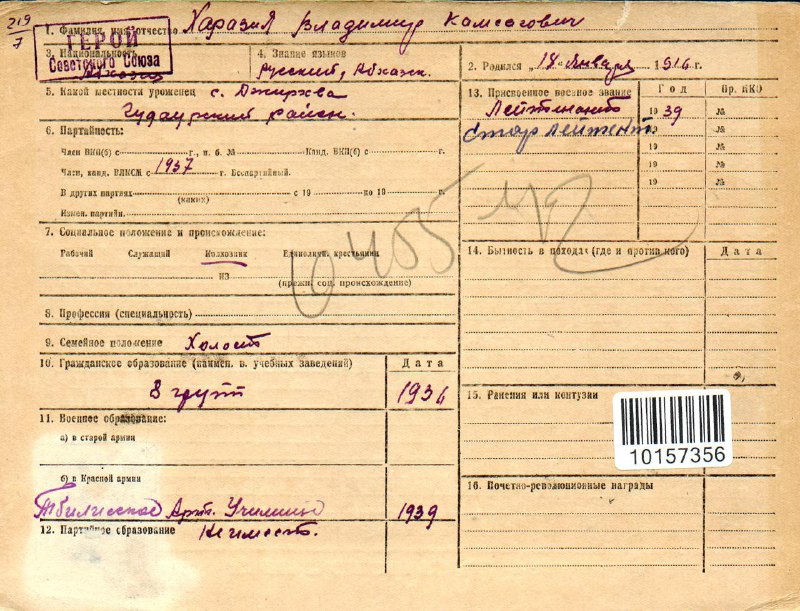 219
7
1. Фамилия, имя, отчество Харазия Владимир Камсагович
ГЕРОЙ
Советского Союза
3. Национальность
4. Знание языков
Русский, Абхазск.
2. Родился „18" Января 1916 г.
5. Какой местности уроженец с. Джирхва
Гудаутский район.
13. Присвоенное военное звание
Год
Пр. НКО
Лейтенант 1939 №
Стар лейтенант №
19 №
19 №
19 №
6. Партийность:
Член ВКП(б) с г., п. б. № Канд. ВКП(б) с г.
Член, канд. ВЛКСМ с 1937 г. Беспартийный.
В других партиях с 19 по 19 г.
(каких)
Измен. партийн.
6405
7. Социальное положение и происхождение:
Рабочий Служащий Колхозник Единоличн. крестьянин
из
(прежн. соц. происхождение)
14. Бытность в походах (где и против кого)
Дата
8. Профессия (специальность)
9. Семейное положение Холост
10. Гражданское образование (наимен. в. учебных заведений)
Дата
8 групп 1936
15. Ранения или контузии
10157356
11. Военное образование:
а) в старой армии
б) в Красной армии
Тбилисское Арт. Училище 1939
16. Почетно-революционные награды
12. Партийное образование Не имеет.